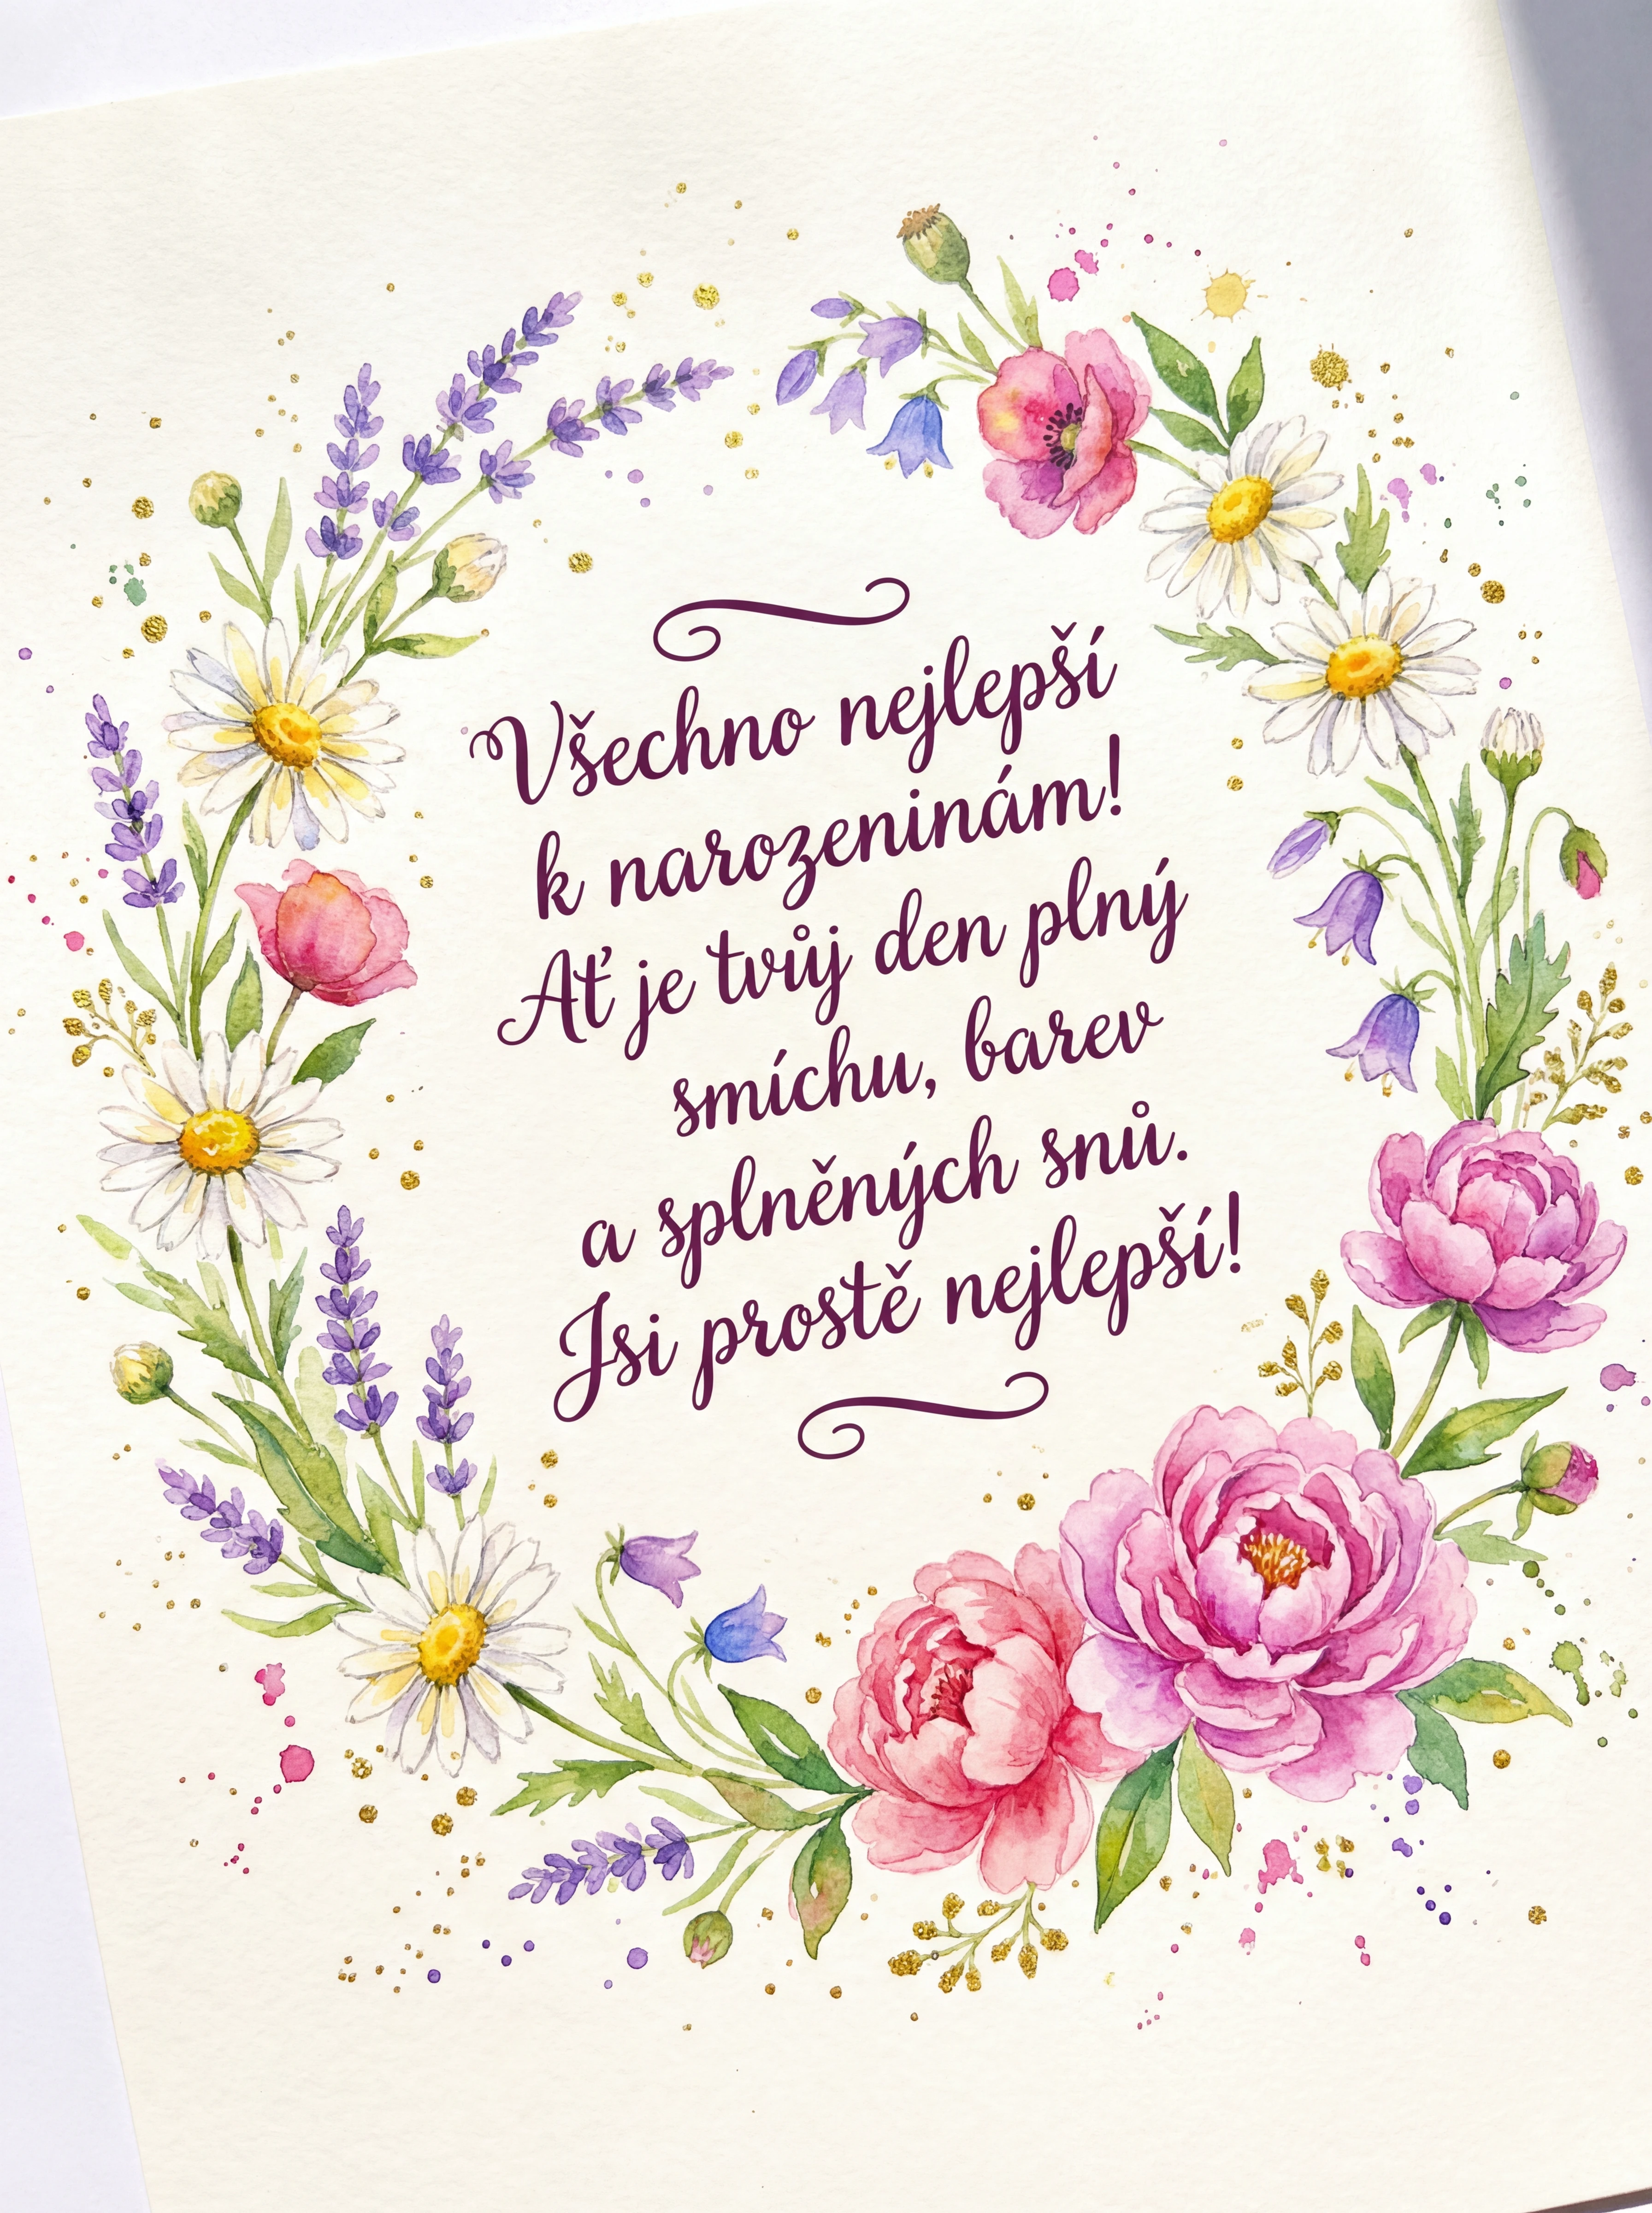 Všechno nejlepší
k narozeninám!
Ať je tvůj den plný
smíchu, barev
a splněných snů.
Jsi prostě nejlepší!